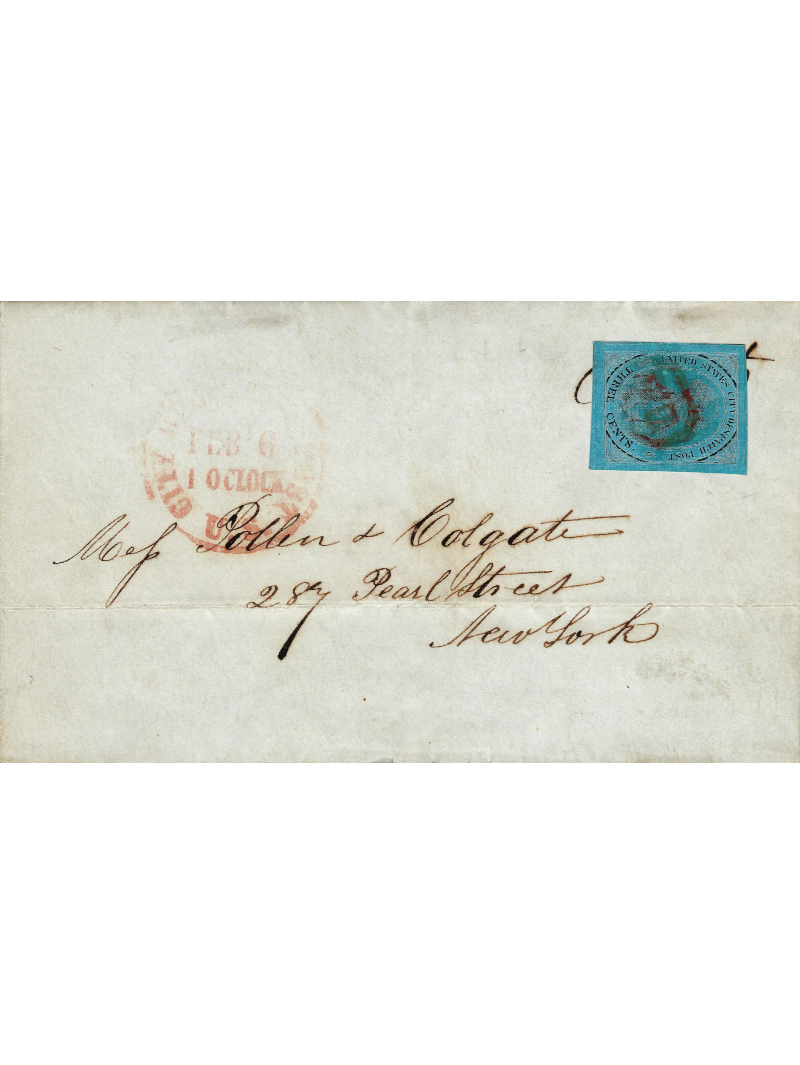 UNITED STATES CITY DESPATCH POST
THREE CENTS.
CITY
FEB 6
1 OCLOCK
U
Mess Pollen & Colgate
287 Pearl Street
New York